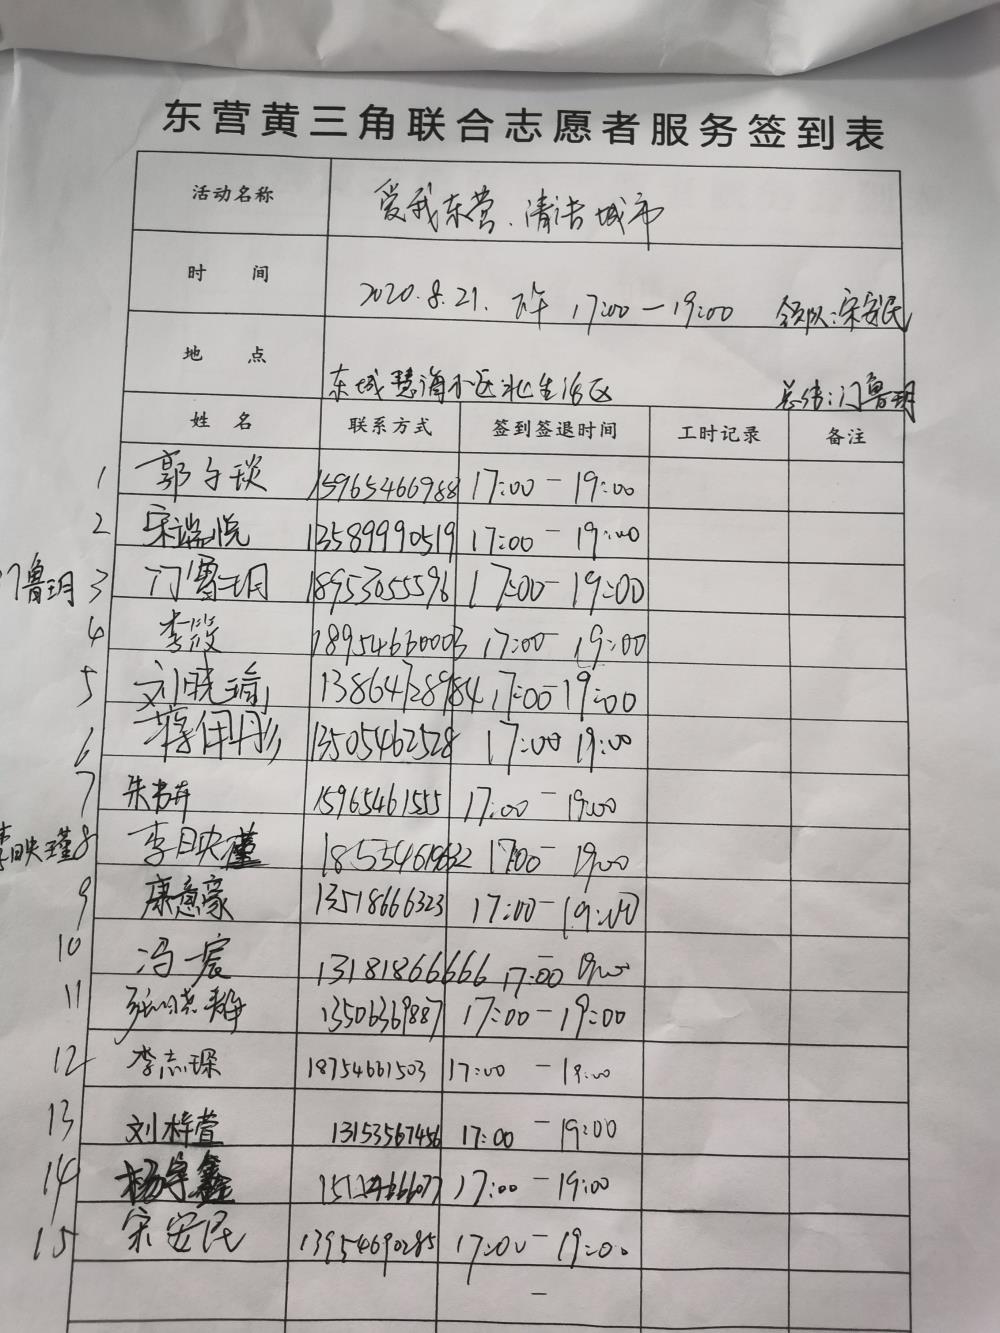 东营黄三角联合志愿者服务签到表
活动名称 爱我东营、清洁城市
时 间 2020.8.21. 下午 17:00—19:00 领队:宋安民
地 点 东城慧海小区北生活区 总结:门鲁玥
姓 名 联系方式 签到签退时间 工时记录 备注
1 郭子琰 15965466988 17:00-19:00
2 宋端悦 13589990519 17:00-19:00
门鲁玥 3 门鲁玥 18953055596 17:00-19:00
4 李筱 18954660003 17:00-19:00
5 刘晓瑜 13864728984 17:00-19:00
6 蒋佴彤 13505462528 17:00 19:00
7 朱书卉 15965461555 17:00-19:00
李映瑾 8 李映瑾 17:00-19:00
9 康意豪 13518666323 17:00-19:00
10 冯一宸 13181866666 17:00-19:00
11 张晓静 13506369887 17:00-19:00
12 李志琛 18754661503 17:00-19:00
13 刘梓萱 13153567456 17:00-19:00
14 杨宇鑫 17:00-19:00
15 宋安民 13954690285 17:00-19:00
-